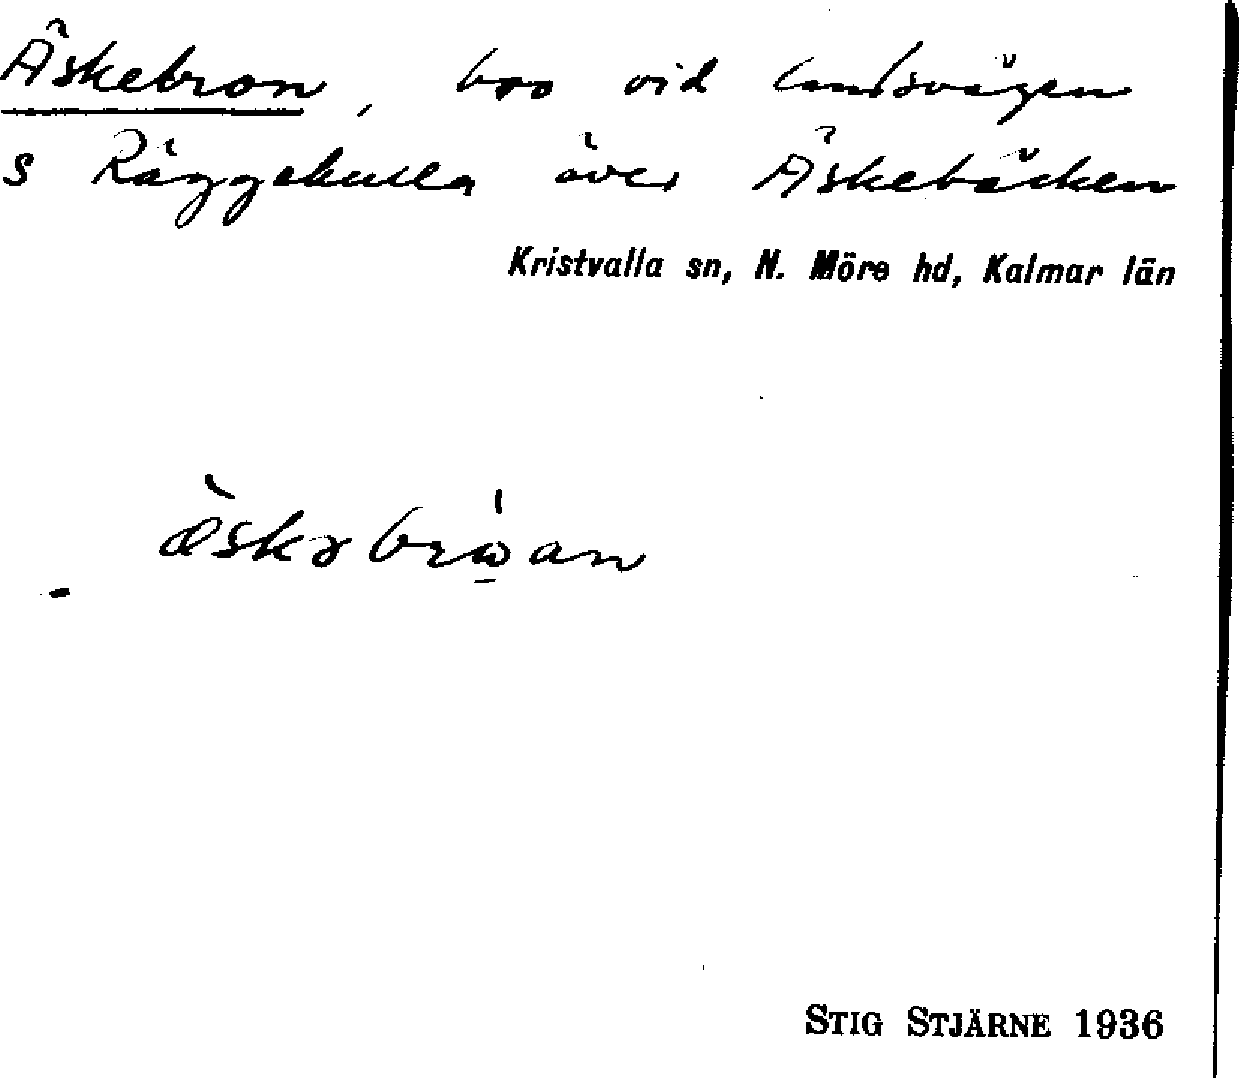 Äskebron, bro vid landsvägen
s Räggekulla över Äskebäcken
Kristvalla sn, N. Möre hd, Kalmar län
STIG STJÄRNE 1936